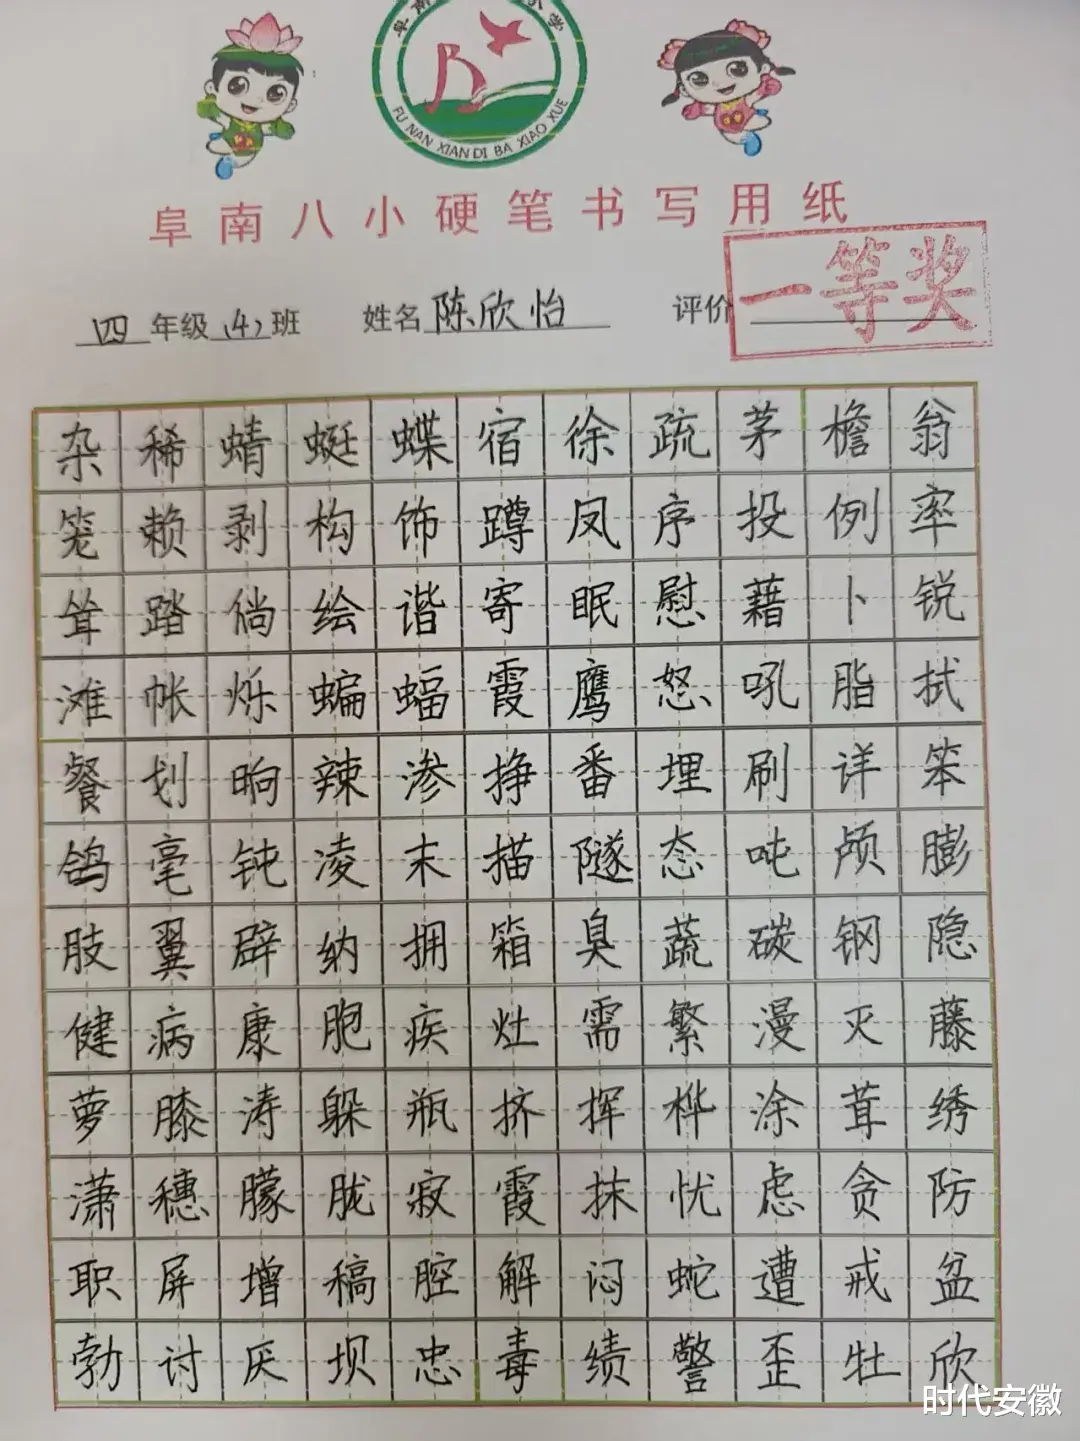 阜南 小学
FU NAN XIAN DI BA XIAO XUE
阜南八小硬笔书写用纸
一等奖
四年级(4)班 姓名陈欣怡 评价
杂稀蜻蜓蝶宿徐疏茅檐翁
笼赖剥构饰蹲凤序投例率
耸踏倘绘谐寄眠慰藉卜锐
滩帐烁蝙蝠霞鹰怒吼脂拭
餐划晌辣渗挣番埋刷详笨
鸽毫钝凌末描隧态吨颅膨
肢翼辟纳拥箱臭蔬碳钢隐
健病康胞疾灶需繁漫灭藤
萝膝涛躲瓶挤挥桦涂茸绣
潇穗朦胧寂霞抹忧虑贪防
职屏增稿腔解闷蛇遭戒盆
勃讨厌坝忠毒绩警歪牡欣
时代安徽